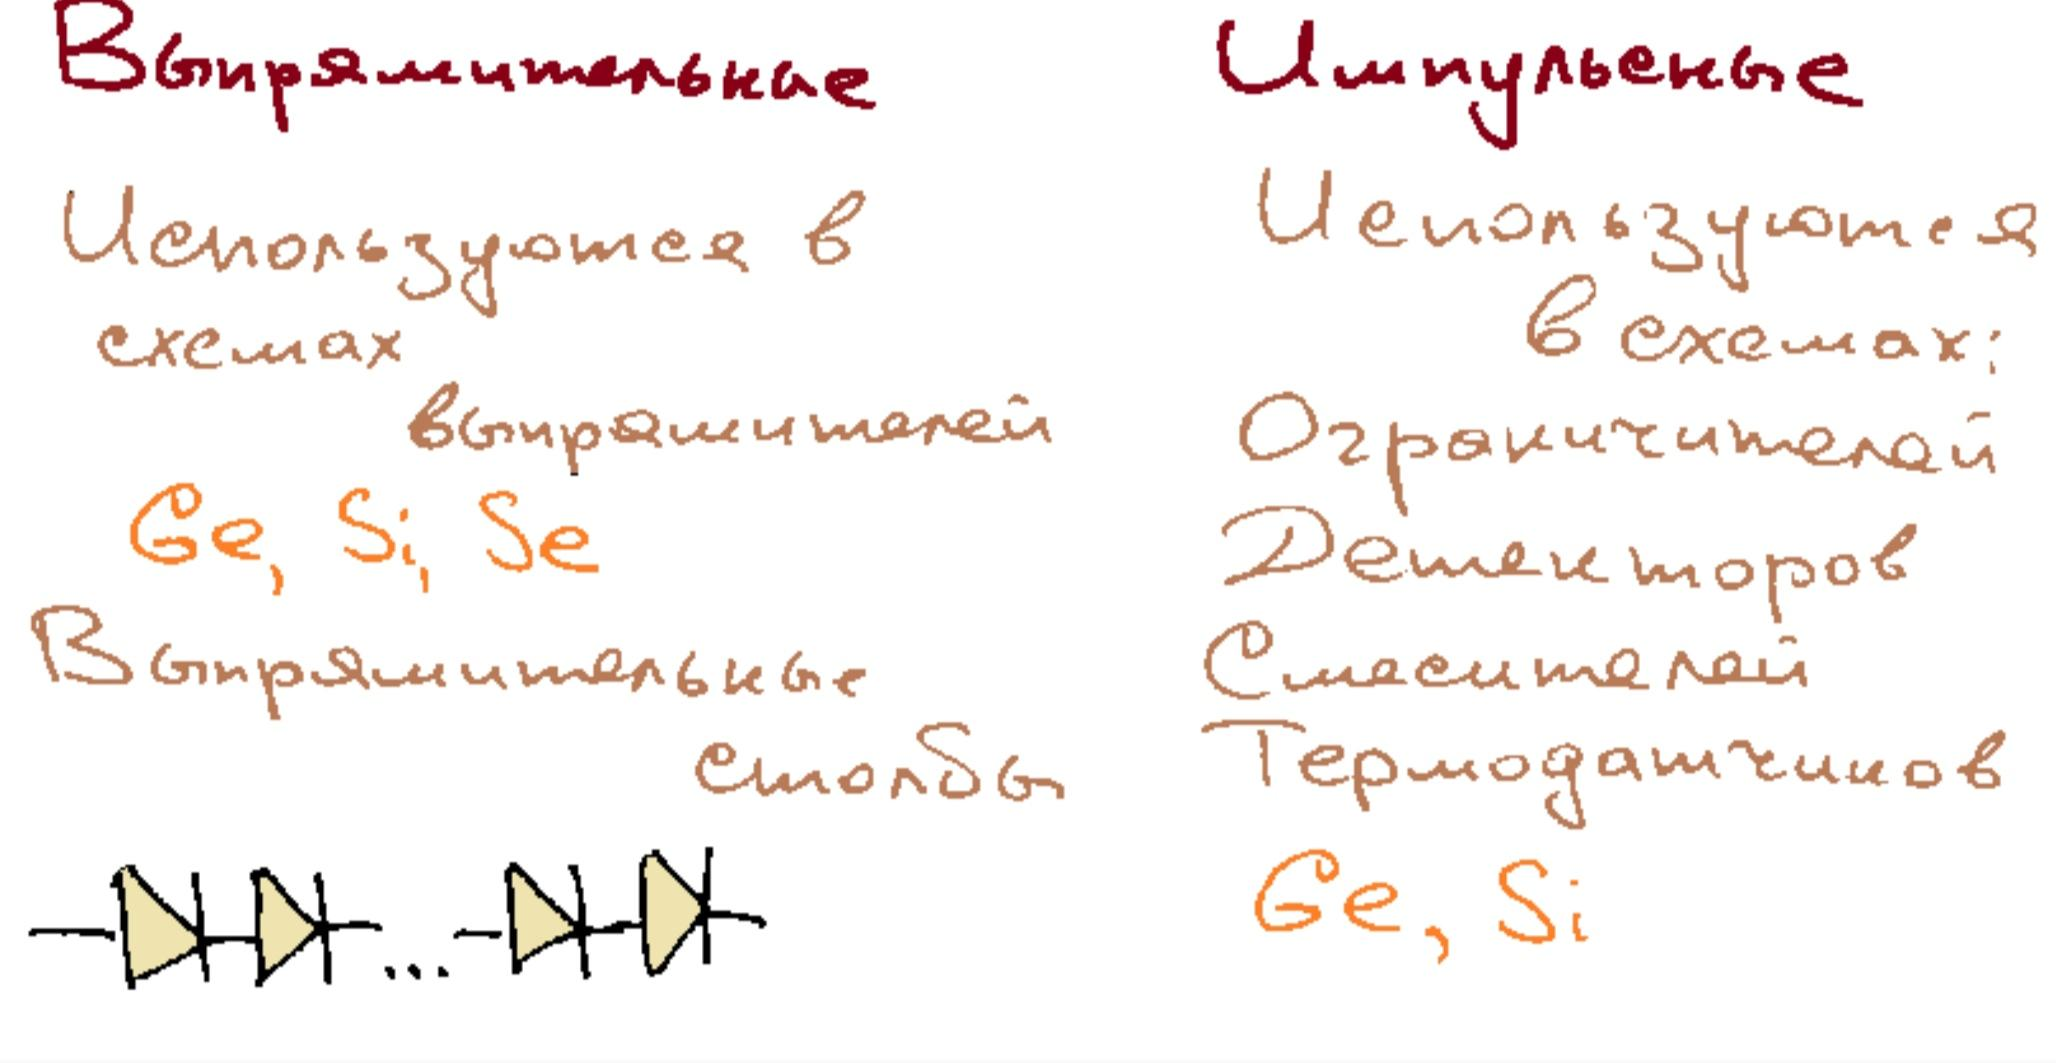 Выпрямительные
Используются в
схемах
выпрямителей
Ge, Si, Se
Выпрямительные
столбы
...
Импульсные
Используются
в схемах:
Ограничителей
Детекторов
Смесителей
Термодатчиков
Ge, Si